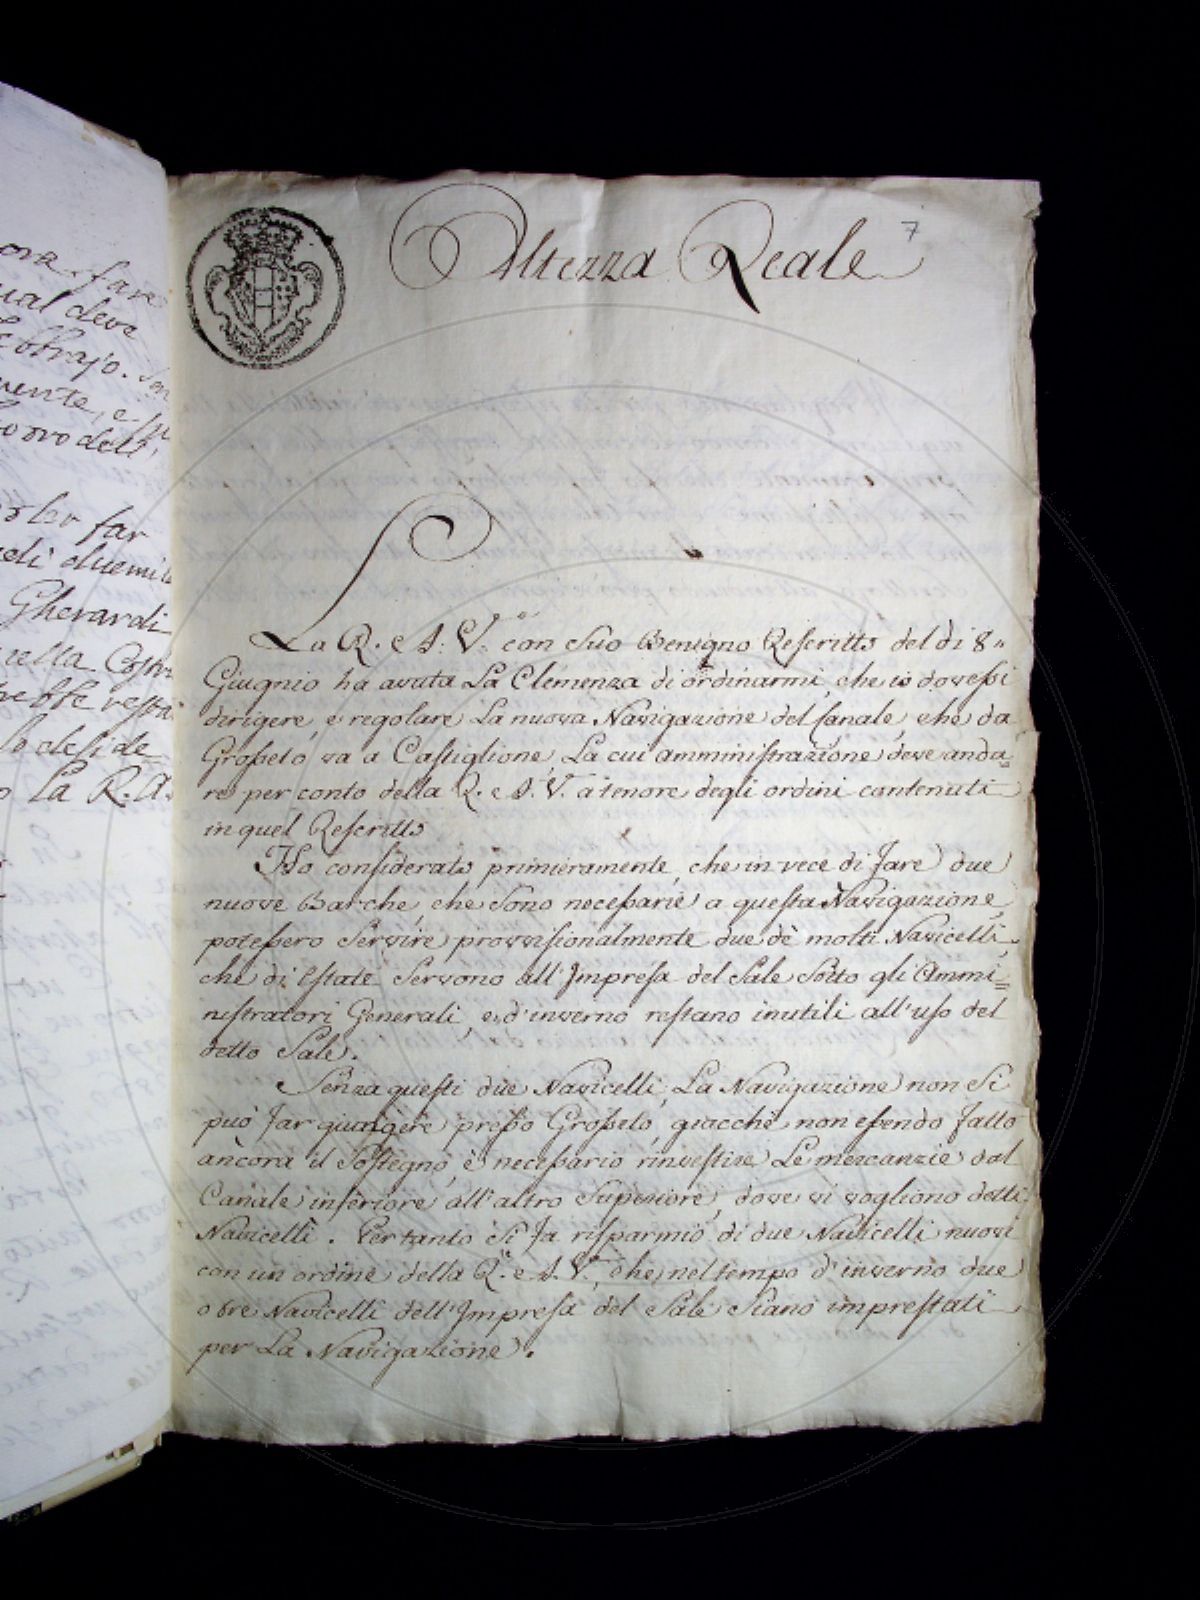 ora fare
ual deve
uente, e
oro dell'
far
Gherardi
lo deside=
La R. A.
7
Altezza Reale
La R. e A: V.ra con suo Benigno Rescritto del dì 8.,
Giugnio ha avuta La Clemenza di ordinarmi, che io dovessi
dirigere, e regolare La nuova Navigazione del Canale, che da
Grosseto va a Castiglione, La cui amministrazione deve anda=
re per conto della R. e A. V. a tenore degli ordini contenuti
in quel Rescritto
Ho considerato primieramente, che in vece di fare due
nuove Barche, che sono necessarie a questa Navigazione,
potessero servire provvisionalmente due dè molti Navicelli,
che di Estate servono all'Impresa del Sale sotto gli Ammi=
nistratori Generali, e d'inverno restano inutili all'uso del
detto Sale.
Senza questi due Navicelli, La Navigazione non si
può far giungere presso Grosseto, giacchè non essendo fatto
ancora il Sostegno, è necessario rinvestire Le mercanzie dal
Canale inferiore all'altro Superiore, dove vi vogliono detti
Navicelli. Pertanto si fa risparmio di due Navicelli nuovi
con un ordine della R.le e A. V., che nel tempo d'inverno due
o tre Navicelli dell'Impresa del Sale siano imprestati
per La Navigazione.